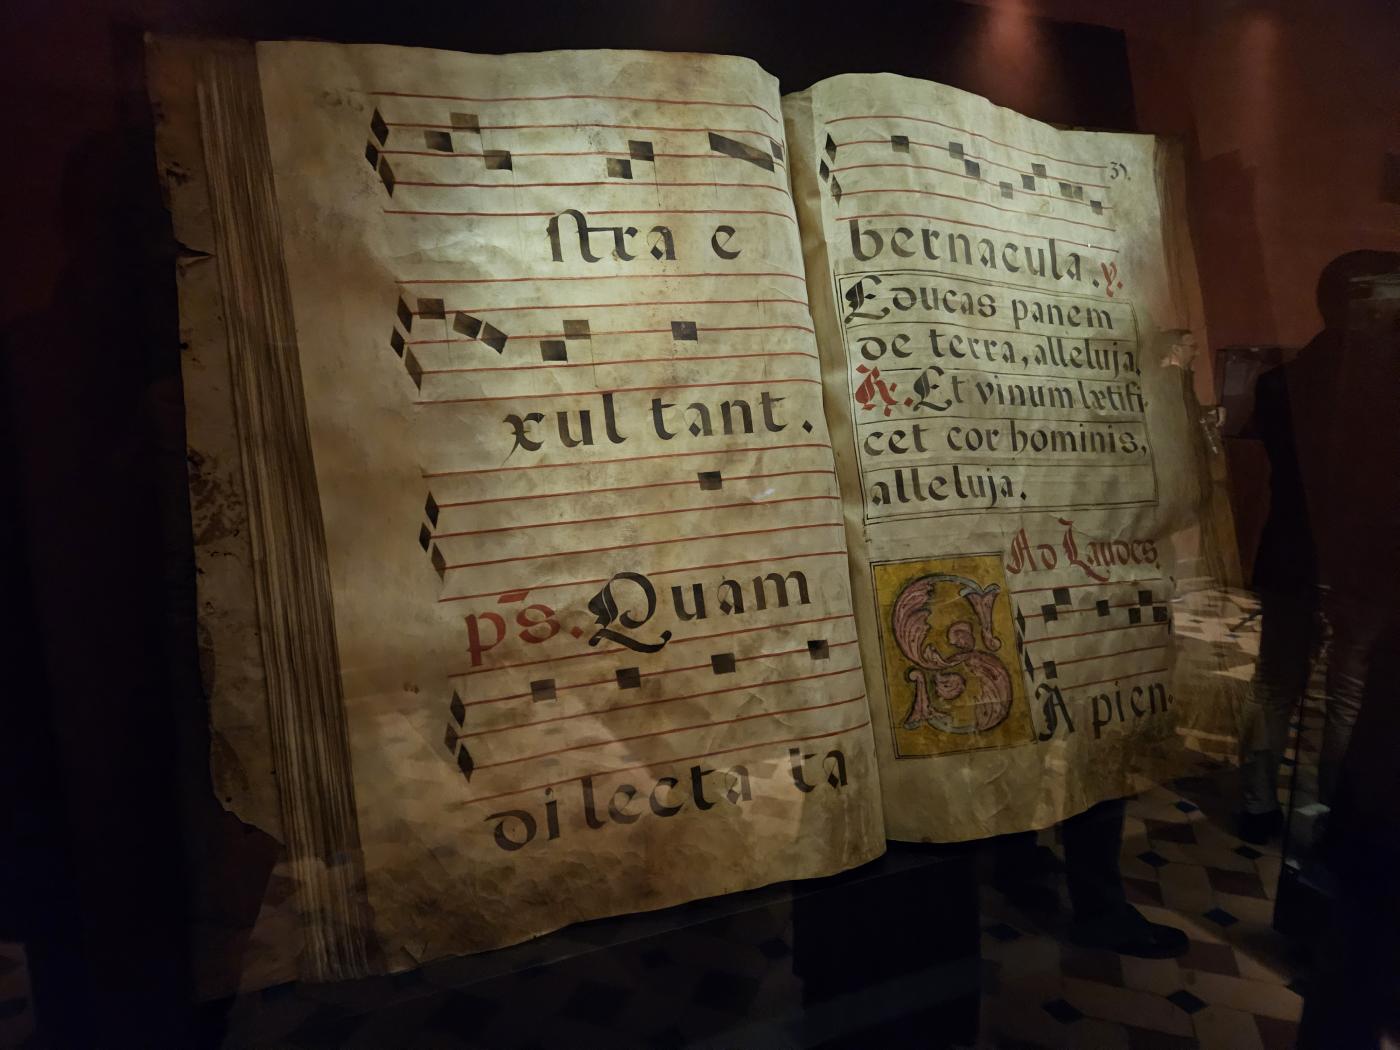 stra e
xul tant.
ps. Quam
dilecta ta
31.
bernacula. v.
Educas panem
de terra, alleluja,
R. Et vinum lætifi
cet cor hominis,
alleluja.
Ad Laudes.
SA pien-